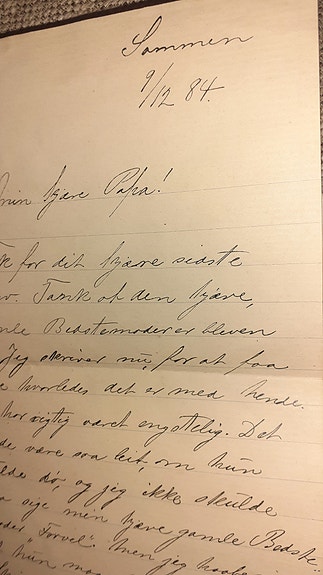 Sommen
9/12 84.
min kjære Papa!
k for dit kjære sidste
v. Tænk at den kjære,
mle Bedstemoder er bleven
Jeg skriver nu, for at faa
e hvorledes det er med hende.
har rigtig været engstelig. Det
de være saa leit, om hun
lde dö, og jeg ikke skulde
sige min kjære gamle Bedste-
"Farvel". Men jeg haab
hun maa